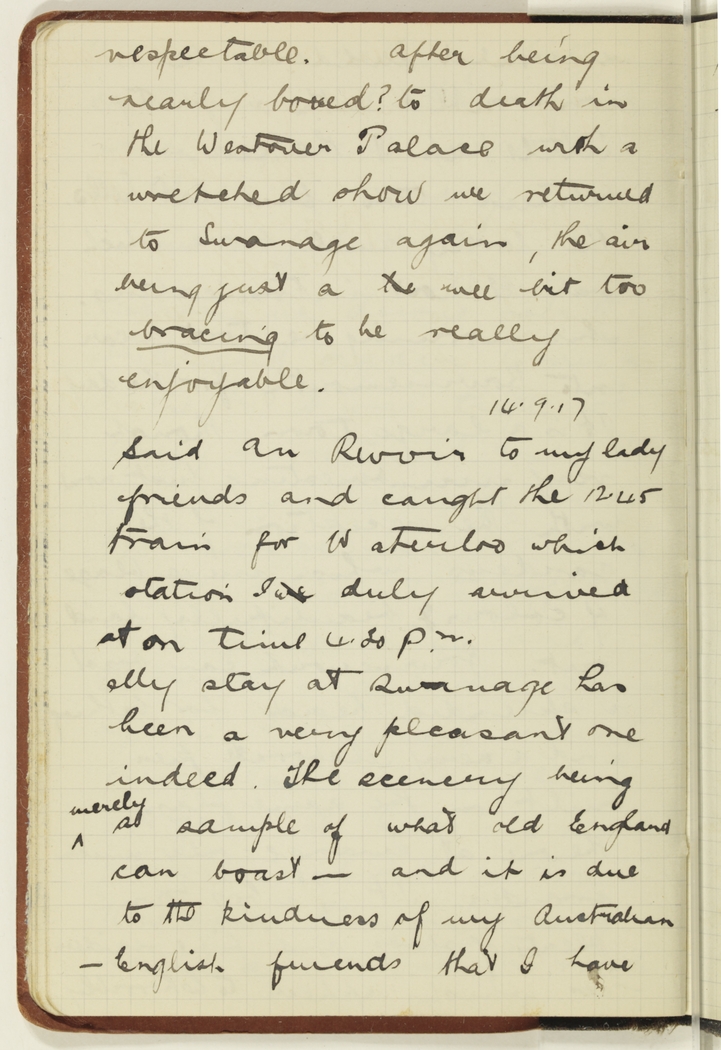 respectable. After being
nearly bored? to death in
the Westover Palace with a
wretched show we returned
to Swanage again, the air
being just a the wee bit too
bracing to be really
enjoyable.
14.9.17
Said au Revoir to my lady
friends and caught the 12.45
train for Waterloo which
station I duly arrived
at on time 4.30 p.m.
My stay at Swanage has
been a very pleasant one
indeed. The scenery being
merely
a sample of what old England
can boast — and it is due
to the kindness of my Australian
— English friends that I have